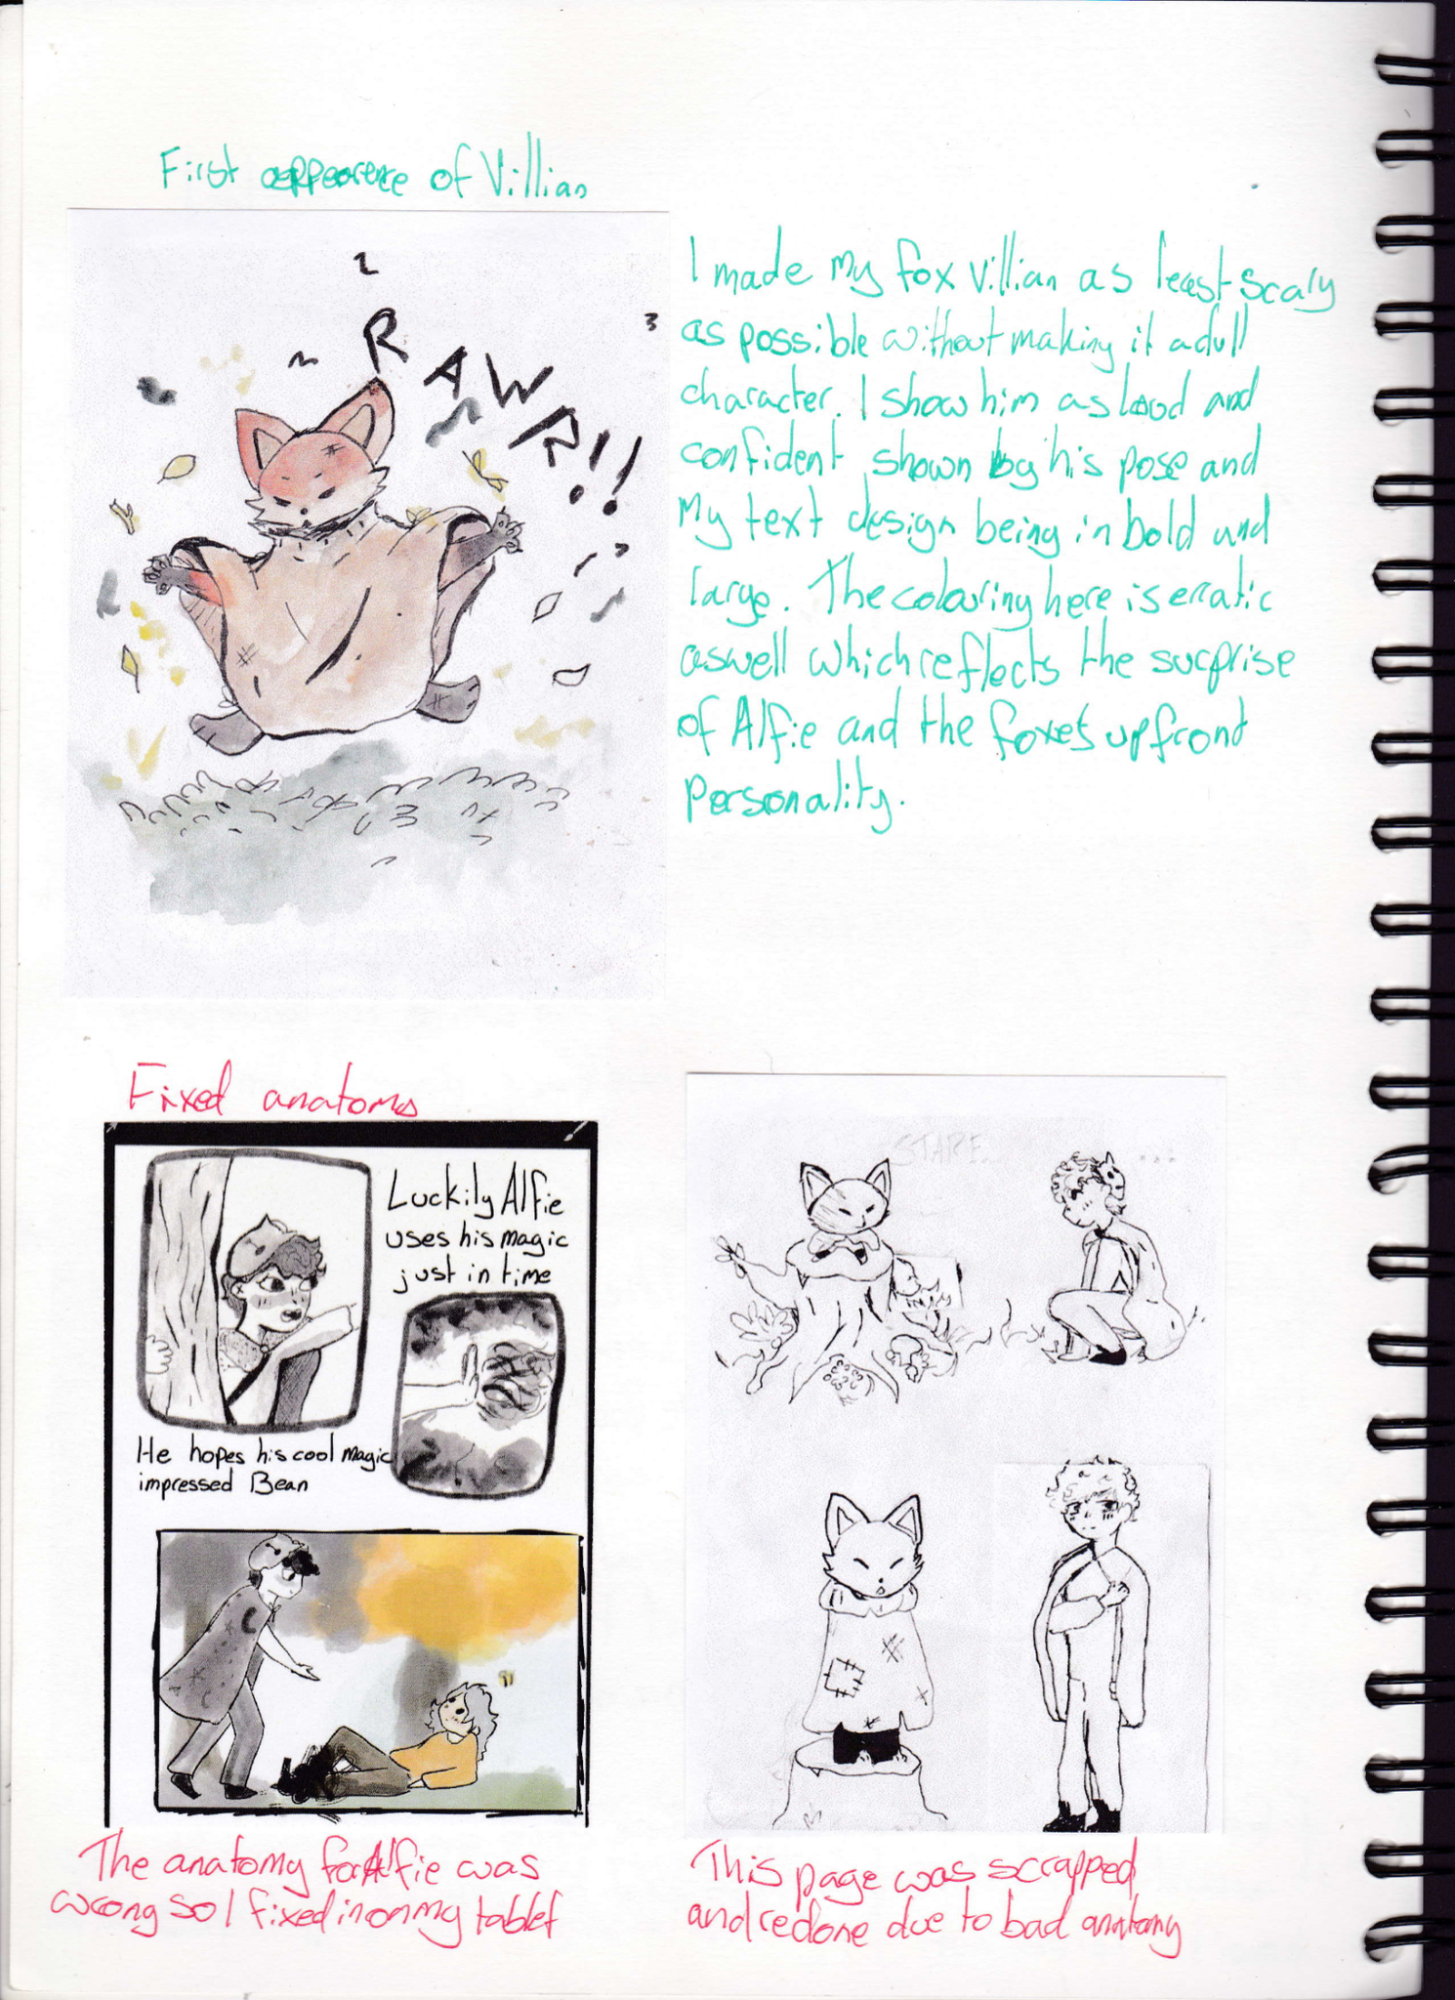 First appearence of Villian
RAWR!!
I made my fox villian as least scary
as possible without making it a dull
character. I show him as loud and
confident shown by his pose and
My text design being in bold and
large. The colouring here is erratic
aswell which reflects the surprise
of Alfie and the foxes upfront
personality.
Fixed anatomy
Luckily Alfie
uses his magic
just in time
He hopes his cool magic
impressed Bean
The anatomy for Alfie was
wrong so I fixed in on my tablet
STARE...
...
This page was scrapped
and redone due to bad anatomy